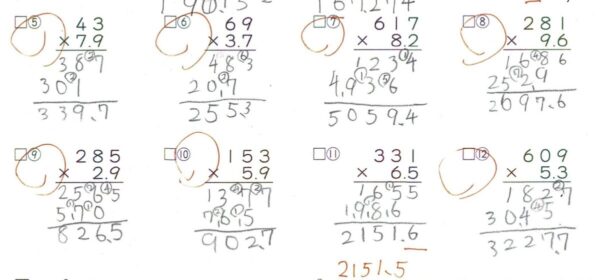 ⑤ 43
× 7.9
387
301
339.7
⑥ 69
× 3.7
483
207
255.3
⑦ 617
× 8.2
1234
4936
5059.4
⑧ 281
× 9.6
1686
2529
2697.6
⑨ 285
× 2.9
2565
570
826.5
⑩ 153
× 5.9
1377
765
902.7
⑪ 331
× 6.5
1655
1986
2151.6
2151.5
⑫ 609
× 5.3
1827
3045
3227.7